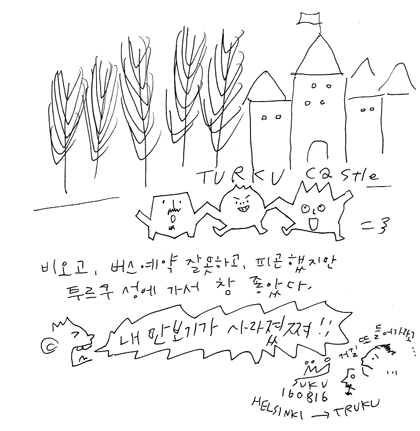 TURKU Castle
비오고, 버스예약 잘못하고, 피곤했지만
투르쿠 성에 가서 참 좋았다.
내 만보기가 사라졌쪄!!
또 들어가랴고
SUKU
160816
HELSINKI → TRUKU